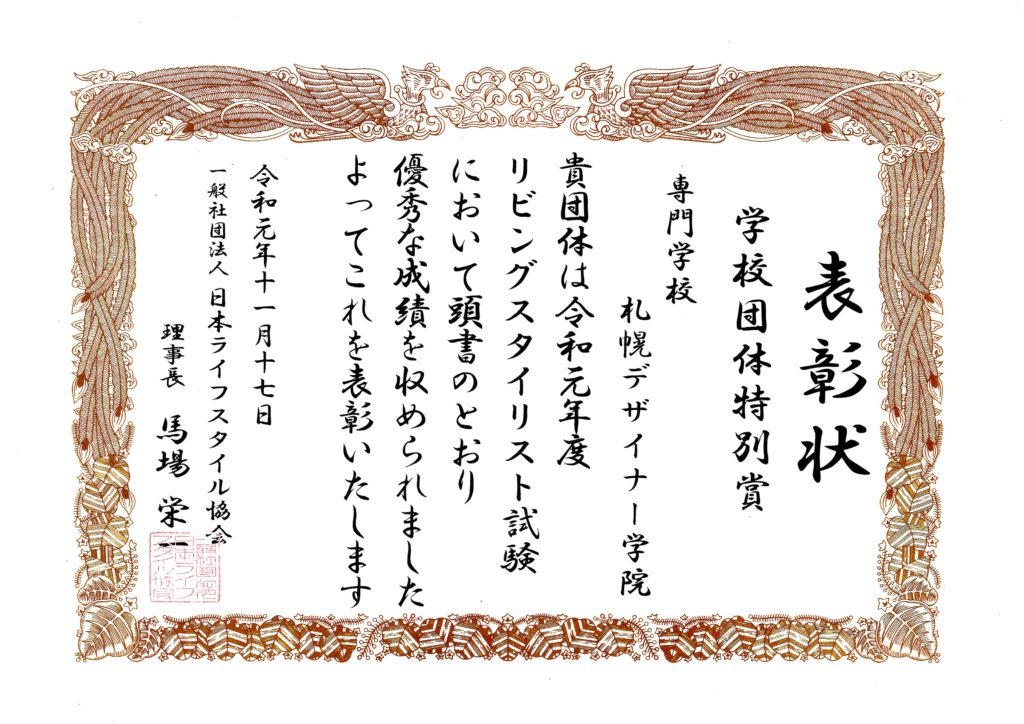 表彰状
学校団体特別賞
専門学校
札幌デザイナー学院
貴団体は令和元年度
リビングスタイリスト試験
において頭書のとおり
優秀な成績を収められました
よってこれを表彰いたします
令和元年十一月十七日
一般社団法人 日本ライフスタイル協会
理事長 馬場 栄一